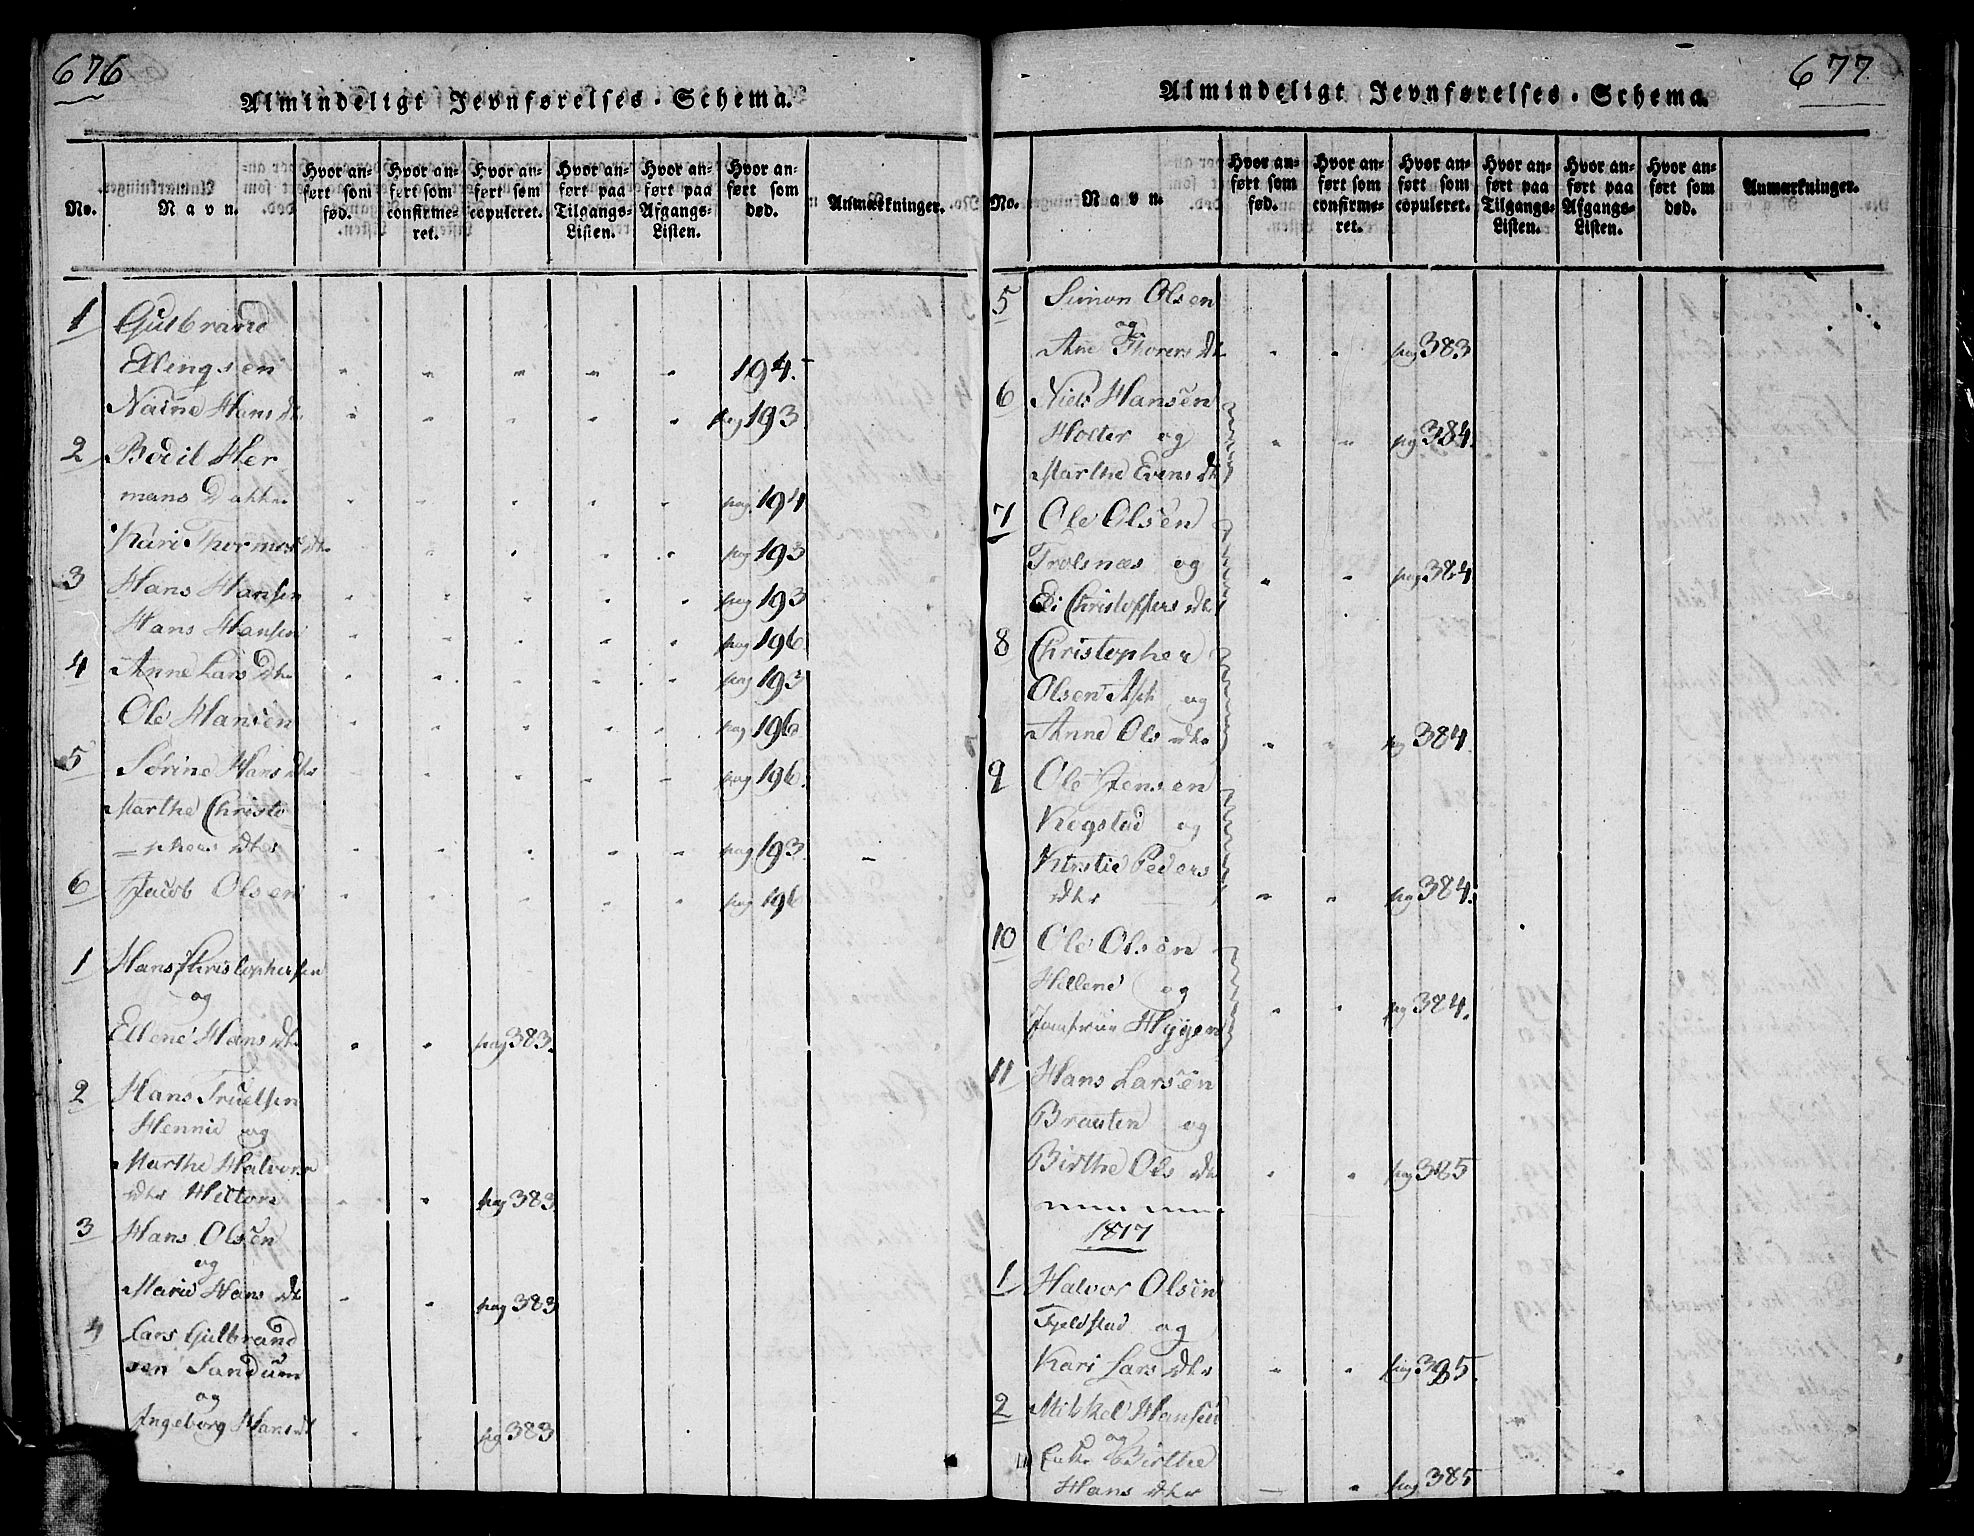 676
Almindeligt Jevnførelses-Schema.
No.
Navn.
Hvor an-
ført som
fød.
Hvor an-
ført som
confirme-
ret.
Hvor an-
ført som
copuleret.
Hvor an-
ført paa
Tilgangs-
Listen.
Hvor an-
ført paa
Afgangs-
Listen.
Hvor an-
ført som
død.
Anmærkninger.
1 Gulbrand
Ellingsen 194.
Hans dtr pag 193
2 Bodil Her
mans pag 194
Kari pag 193
3 Hans Hansen pag 193
Hans Hansen pag 196
4 Anne Lars dtr pag 193
Ole Hansen pag 196
5 Sørine Hans dtr pag 196.
Marthe Christo
=phers dtr pag 193
6 Jacob Olsen pag 196
1 Hans Christophersen
og
Ellene Hans dtr pag 383.
2 Hans Truelsen
Hennie og
Marthe Halvors
dtr pag 383
3 Hans Olsen
og
Marie Hans dtr pag 383
4 Lars Gulbrand
sen Sandum
og
Ingeborg Hans dt pag 383
677
Almindeligt Jevnførelses-Schema.
No.
Navn.
Hvor an-
ført som
fød.
Hvor an-
ført som
confirme-
ret.
Hvor an-
ført som
copuleret.
Hvor an-
ført paa
Tilgangs-
Listen.
Hvor an-
ført paa
Afgangs-
Listen.
Hvor an-
ført som
død.
Anmærkninger.
5 Simon Olsen
og
Ane Thorers dt pag 383
6 Niels Hansen
Holter og pag 384.
Marthe Evens dt
7 Ole Olsen
Trolsnæs og pag 384
Christophers dtr
8 Christopher
Olsen Ask og
Anne Ols dtr pag 384
9 Ole Jensen
Kogstad og
Kirstie Peders
dtr pag 384.
10 Ole Olsen
Hellend og pag 384.
Jomfrue Hygen
11 Hans Larsen
Brauten og
Birthe Ols dtr pag 385
1817
1 Halvor Olsen
Fjeldstad og
Kari Lars dtr pag 385.
2 Mikkel Hansen
og
Enke Birthe
Hans dtr pag 385